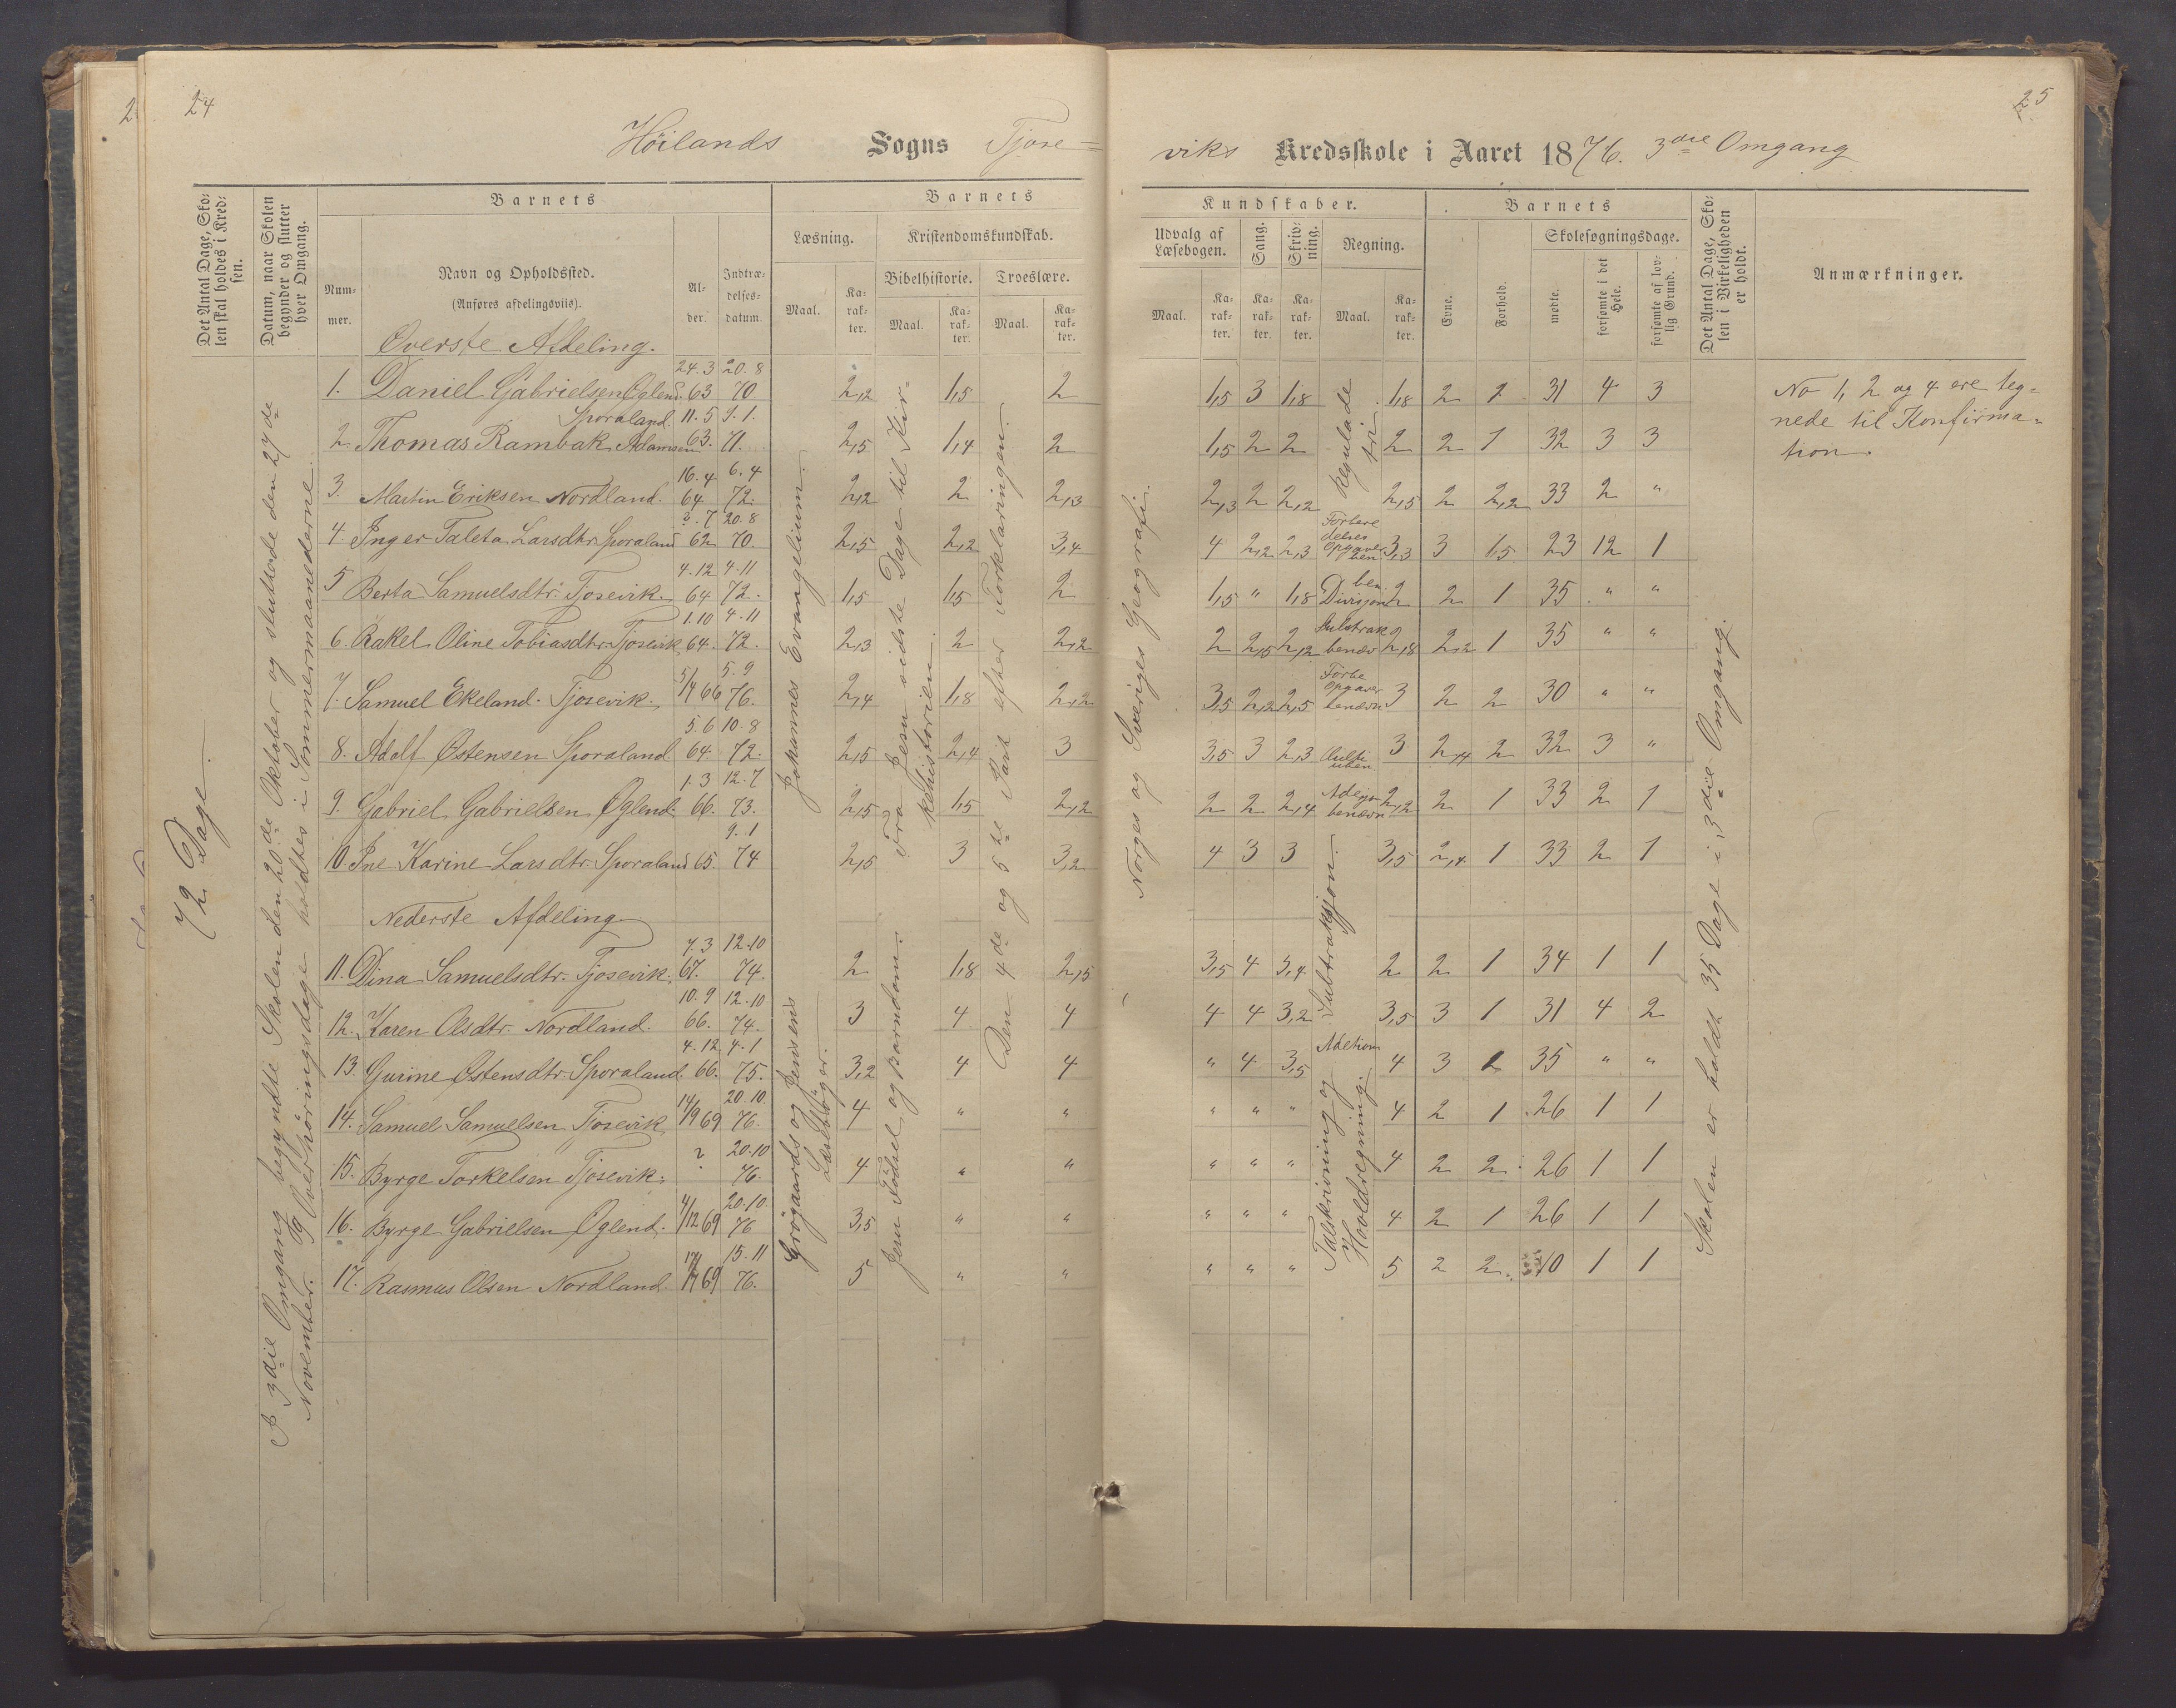 24
25
Höilands Sogns Tjose=
viks Kredsskole i Aaret 1876. 3die Omgang
Det Antal Dage, Sko-
len skal holdes i Kred-
sen.
Datum, naar Skolen
begynder og slutter
hver Omgang.
Barnets
Num-
mer.
Navn og Opholdssted.
(Anføres afdelingsviis).
Al-
der.
Indtræ-
delses-
datum.
Barnets
Læsning.
Kristendomskundskab.
Bibelhistorie.
Troeslære.
Maal.
Ka-
rak-
ter.
Maal.
Ka-
rak-
ter.
Maal.
Ka-
rak-
ter.
Kundskaber.
Udvalg af
Læsebogen.
Sang.
Skriv-
ning.
Regning.
Maal.
Ka-
rak-
ter.
Ka-
rak-
ter.
Ka-
rak-
ter.
Maal.
Ka-
rak-
ter.
Barnets
Evne.
Forhold.
Skolesøgningsdage.
mødte.
forsømte i det
Hele.
forsømte af lov-
lig Grund.
Det Antal Dage, Sko-
len i Virkeligheden
er holdt.
Anmærkninger.
72 Dage.
I 3die Omgang begyndte Skolen den 20de Oktober og sluttede den 29de
November. Og Overhøringsdage holdtes i Sommermaanederne.
Johannes Evangelium.
Grögaards og Jensens
Læsebøger.
Fra Jesu sidste Dage til Kir-
kehistorien.
Jesu Fødsel og Barndom.
Den 4de og 5te Part efter Forklaringen.
Norges og Sveriges Geografi.
Skolen er holdt 35 Dage i 3die Omgang.
Overste Afdeling.
1. Daniel Gabrielsen Oglend. 24.3 63 20.8 70 2,12 1,5 2 1,5 3 1,8 Regula de tri 1,8 2 2 31 4 3
2. Thomas Rambak Adamsen Sporaland. 11.5 63. 9.1. 71. 2,5 1,4 2 1,5 2 2 2 2 1 32 3 3
3. Martin Eriksen Nordland. 16.4 64 6.4 72. 2,12 2 2,3 2,3 2 2,12 2,5 2 2,12 33 2 "
4. Inger Taleta Larsdtr. Sporaland 3.7 62 20.8 70. 2,5 2,12 3,4 4 2,12 2,3 3,3 3 1,5 23 12 1
5 Berta Samuelsdtr. Tjosevik. 4.12 64 4.11 72. 1,5 1,5 2 1,5 " 1,8 Divisjon ben. 2 2 1 35 " "
6. Rakel Oline Tobiasdtr. Tjosevik 1.10 64. 4.11 72. 2,3 2 2,12 2 2,5 2,12 Subtrak benæv 2,8 2,2 1 35 " "
7. Samuel Ekeland. Tjosevik. 5/4 66 5.9 76. 2,4 1,8 2,12 3,5 2,12 2,5 Forbe opgaver benævn 3 2 2 30 " "
8. Adolf Östensen Sporaland 5.6 64. 10.8 72. 2,5 2,4 3 3,5 3 2,3 3 2,4 2 32 3 "
9. Gabriel Gabrielsen Oglend. 1.3 66. 12.7 73. 2,5 1,5 2,12 2 2 2,4 benævn 2,12 2 1 33 2 1
10. Ine Karine Larsdtr. Sporaland 65. 9.1 74 2,5 3 3,2 4 3 3 3,5 2,4 1 33 2 1
Nederste Afdeling
11. Dina Samuelsdtr. Tjosevik. 7.3 67. 12.10 74. 2 1,8 2,5 3,5 4 3,4 Subtraksjon. 2 2 1 34 1 1
12. Karen Olsdtr. Nordland. 10.9 66. 12.10 74. 3 4 4 4 4 3,2 3,5 3 1 31 4 2
13. Gurine Östensdtr. Sporaland. 4.12 66. 4.1 75. 3,2 4 4 " 4 3,5 Adetion 4 3 1 35 " "
14. Samuel Samuelsen Tjosevik 14/9 69 20.10. 76. 4 " " " " " Talskrivning og Hovdregning. 4 2 1 26 1 1
15. Byrge Torkelsen Tjosevik. ? 20.10 76. 4 " " " " " 4 2 2 26 1 1
16. Byrge Gabrielsen Oglend. 4/12 69 20.10. 76 3,5 " " " " " 4 2 1 26 1 1
17. Rasmus Olsen Nordland. 69 15.11 76. 5 " " " " " 5 2 2 10 1 1
No 1, 2 og 4 ere teg-
nede til Konfirma-
tion.